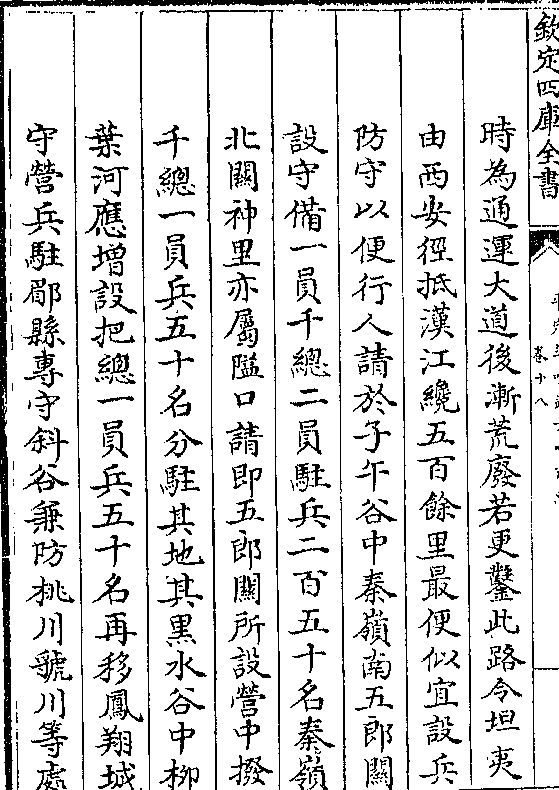 欽定四庫全書
卷十八
時為通運大道後漸荒廢若更鑿此路令坦夷
由西安徑抵漢江纔五百餘里最便似宜設兵
防守以便行人請於子午谷中秦嶺南五郎關
設守備一員千總二員駐兵二百五十名秦嶺
北關神里亦屬隘口請即五郎關所設營中撥
千總一員兵五十名分駐其地其黑水谷中柳
葉河應增設把總一員兵五十名再移鳳翔城
守營兵駐郿縣專守斜谷兼防桃川虢川等處